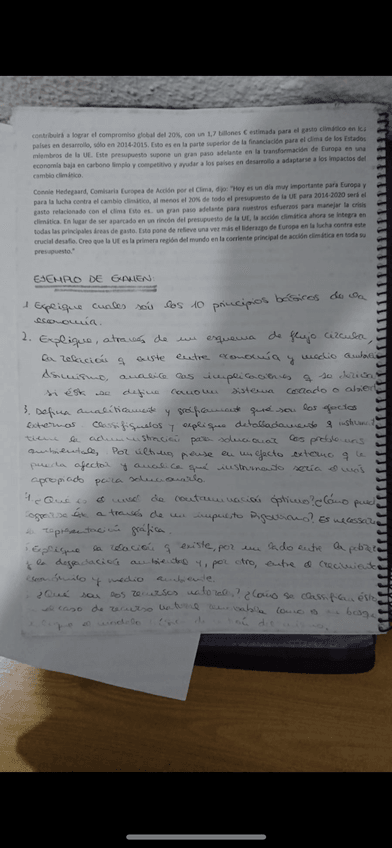 contribuirá a lograr el compromiso global del 20%, con un 1,7 billones € estimada para el gasto climático en los
países en desarrollo, sólo en 2014-2015. Esto es en la parte superior de la financiación para el clima de los Estados
miembros de la UE. Este presupuesto supone un gran paso adelante en la transformación de Europa en una
economía baja en carbono limpio y competitivo y ayudar a los países en desarrollo a adaptarse a los impactos del
cambio climático.
Connie Hedegaard, Comisaria Europea de Acción por el Clima, dijo: "Hoy es un día muy importante para Europa y
para la lucha contra el cambio climático, al menos el 20% de todo el presupuesto de la UE para 2014-2020 será el
gasto relacionado con el clima Esto es. un gran paso adelante para nuestros esfuerzos para manejar la crisis
climática. En lugar de ser apartado en un rincón del presupuesto de la UE, la acción climática ahora se integra en
todas las principales áreas de gasto. Esto pone de relieve una vez más el liderazgo de Europa en la lucha contra este
crucial desafío. Creo que la UE es la primera región del mundo en la corriente principal de acción climática en toda su
presupuesto."
EJEMPLO DE EXAMEN:
1. Explique cuales son los 10 principios básicos de la
economía.
2. Explique, através de un esquema de flujo circular,
la relación q existe entre economía y medio
Asimismo, analice las implicaciones q se
si éste se define como un sistema cerrado o abierto
3. Defina analíticamente y gráficamente qué son los efectos
externos. Clasifíquelos y explique detalladamente q
tiene la administración para solucionar los problemas
ambientales. Por último, piense en un efecto externo q le
pueda afectar y analice qué instrumento sería el más
apropiado para solucionarlo.
4. ¿Qué es el nivel de contaminación óptimo? ¿Cómo puede
lograrse éste a través de un impuesto Pigouviano? Es necesaria
la representación gráfica.
Explique la relación q existe, por un lado entre la pobreza
y la degradación ambiental y, por otro, entre el crecimiento
y medio ambiente
¿Qué son los recursos naturales? ¿Cómo se clasifican éstos
el caso de recurso natural
el modelo